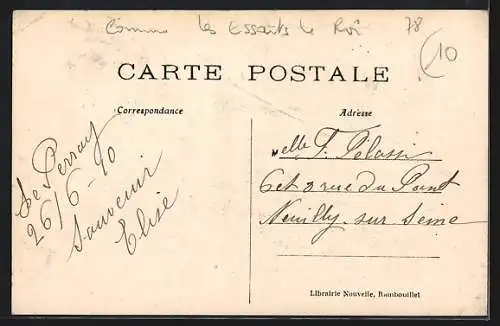 Commune les Essarts le Roi 78
10
CARTE POSTALE
Correspondance
Adresse
Le Perray
26/6-10
Souvenir
Elise
Melle F. Pelassi
6 et 2 rue du Pont
Neuilly sur Seine
Librairie Nouvelle, Rambouillet